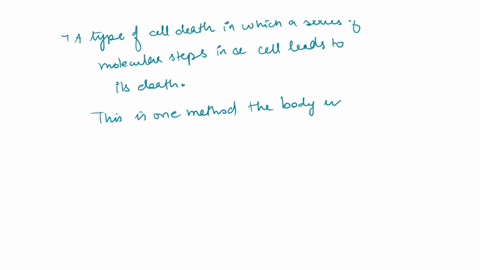 → A type of cell death in which a series of
molecular steps in a cell leads to
its death.
This is one method the body u